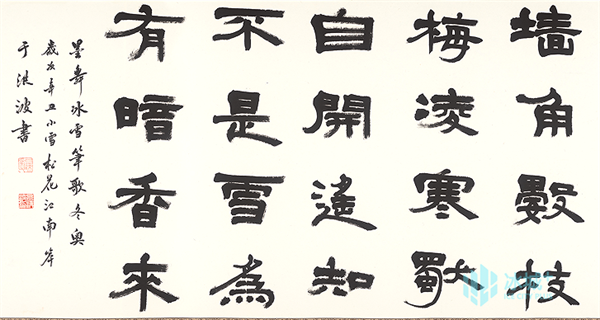 墙角數枝
梅凌寒獨
自開遙知
不是雪為
有暗香來
墨舞冰雪筆歌冬奥
歲次辛丑小雪松花江南岸
于浪波書